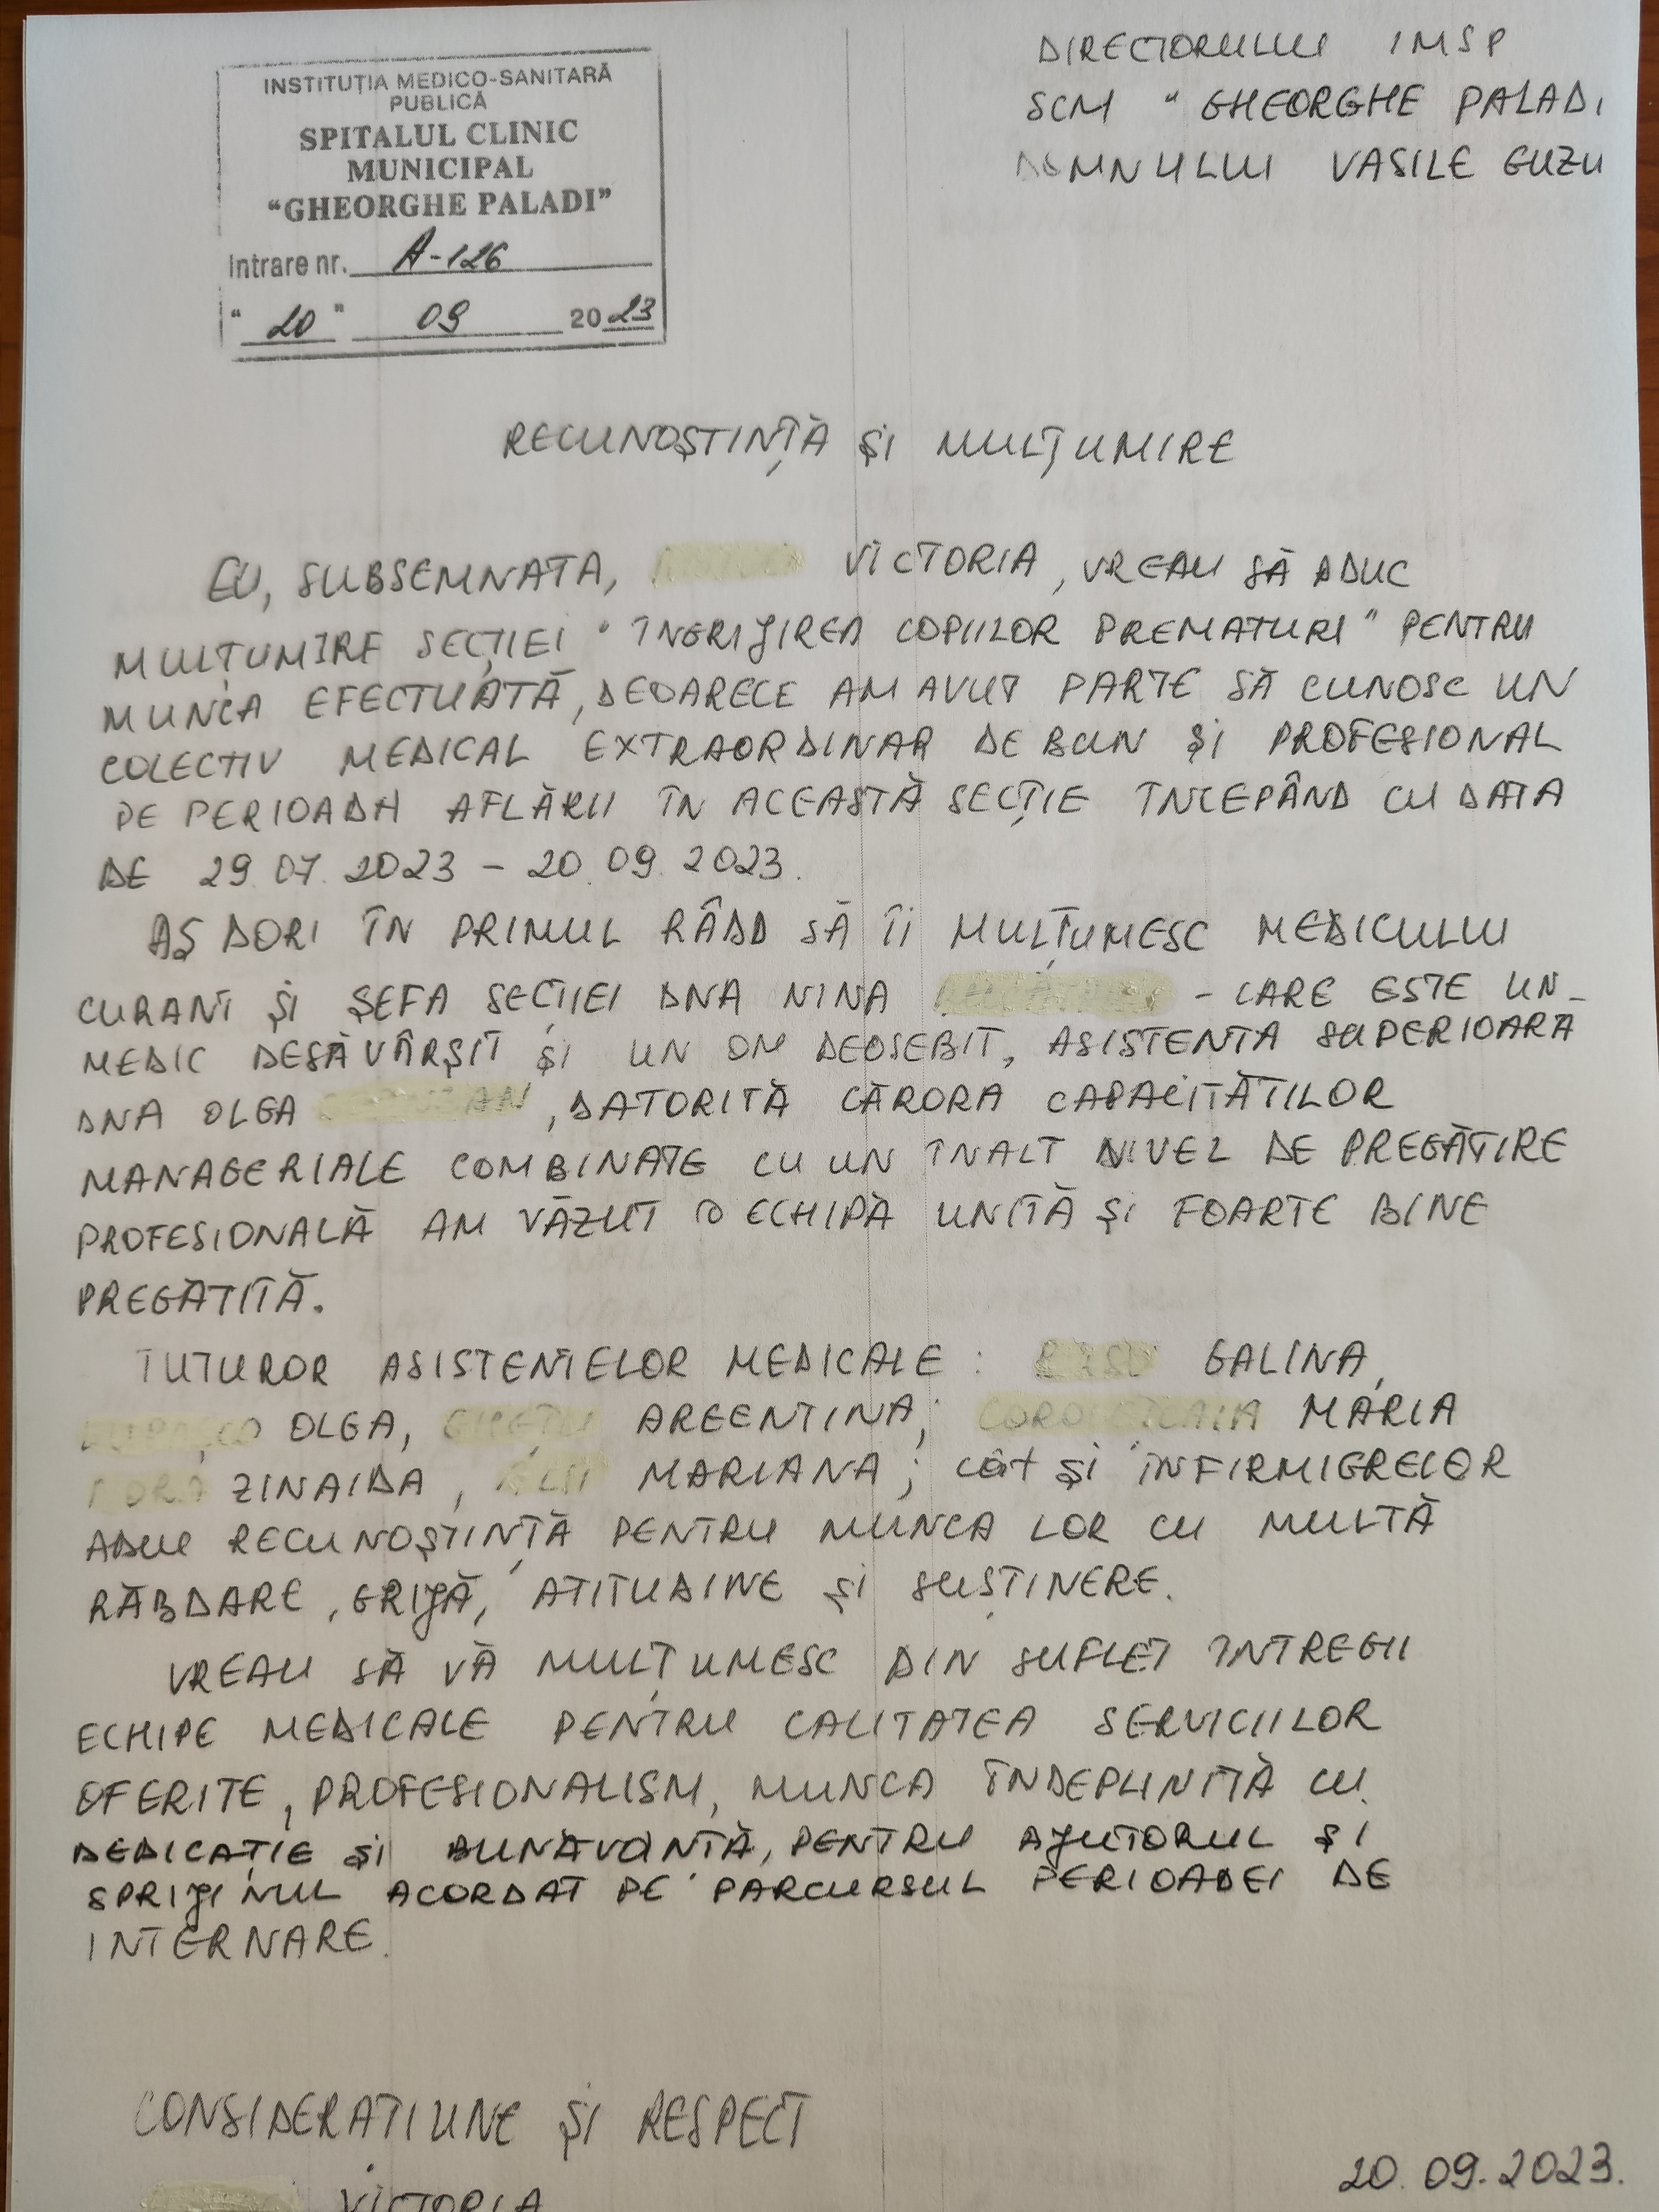 INSTITUȚIA MEDICO-SANITARĂ
PUBLICĂ
SPITALUL CLINIC
MUNICIPAL
“GHEORGHE PALADI”
Intrare nr. A-126
“ 20 ” 09 2023
DIRECTORULUI IMSP
SCM “ GHEORGHE PALADI
DOMNULUI VASILE GUZU
RECUNOȘTINȚĂ ȘI MULȚUMIRE
EU, SUBSEMNATA, VICTORIA, VREAU SĂ ADUC
MULȚUMIRE SECȚIEI " ÎNGRIJIREA COPIILOR PREMATURI " PENTRU
MUNCA EFECTUATĂ, DEOARECE AM AVUT PARTE SĂ CUNOSC UN
COLECTIV MEDICAL EXTRAORDINAR DE BUN ȘI PROFESIONAL
PE PERIOADA AFLĂRII ÎN ACEASTĂ SECȚIE ÎNCEPÂND CU DATA
DE 29.07.2023 – 20.09.2023.
AȘ DORI ÎN PRIMUL RÂDD SĂ ÎI MULȚUMESC MEDICULUI
CURANT ȘI ȘEFA SECȚIEI DNA NINA - CARE ESTE UN
MEDIC DESĂVÂRȘIT ȘI UN OM DEOSEBIT, ASISTENTA SUPERIOARĂ
DNA OLGA , DATORITĂ CĂRORA CAPACITĂȚILOR
MANAGERIALE COMBINATE CU UN ÎNALT NIVEL DE PREGĂTIRE
PROFESIONALĂ AM VĂZUT O ECHIPĂ UNITĂ ȘI FOARTE BINE
PREGĂTITĂ.
TUTUROR ASISTENTELOR MEDICALE : GALINA,
OLGA, ARGENTINA; MARIA
ZINAIDA, MARIANA; cât ȘI INFIRMIERELOR
ADUC RECUNOȘTINȚĂ PENTRU MUNCA LOR CU MULTĂ
RĂBDARE, GRIJĂ, ATITUDINE ȘI SUSȚINERE.
VREAU SĂ VĂ MULȚUMESC DIN SUFLET ÎNTREGII
ECHIPE MEDICALE PENTRU CALITATEA SERVICIILOR
OFERITE, PROFESIONALISM, MUNCA ÎNDEPLINITĂ CU
DEDICAȚIE ȘI BUNĂVOINTĂ, PENTRU AJUTORUL ȘI
SPRIJINUL ACORDAT PE PARCURSUL PERIOADEI DE
INTERNARE.
CONSIDERAȚIUNE ȘI RESPECT
VICTORIA
20.09.2023.